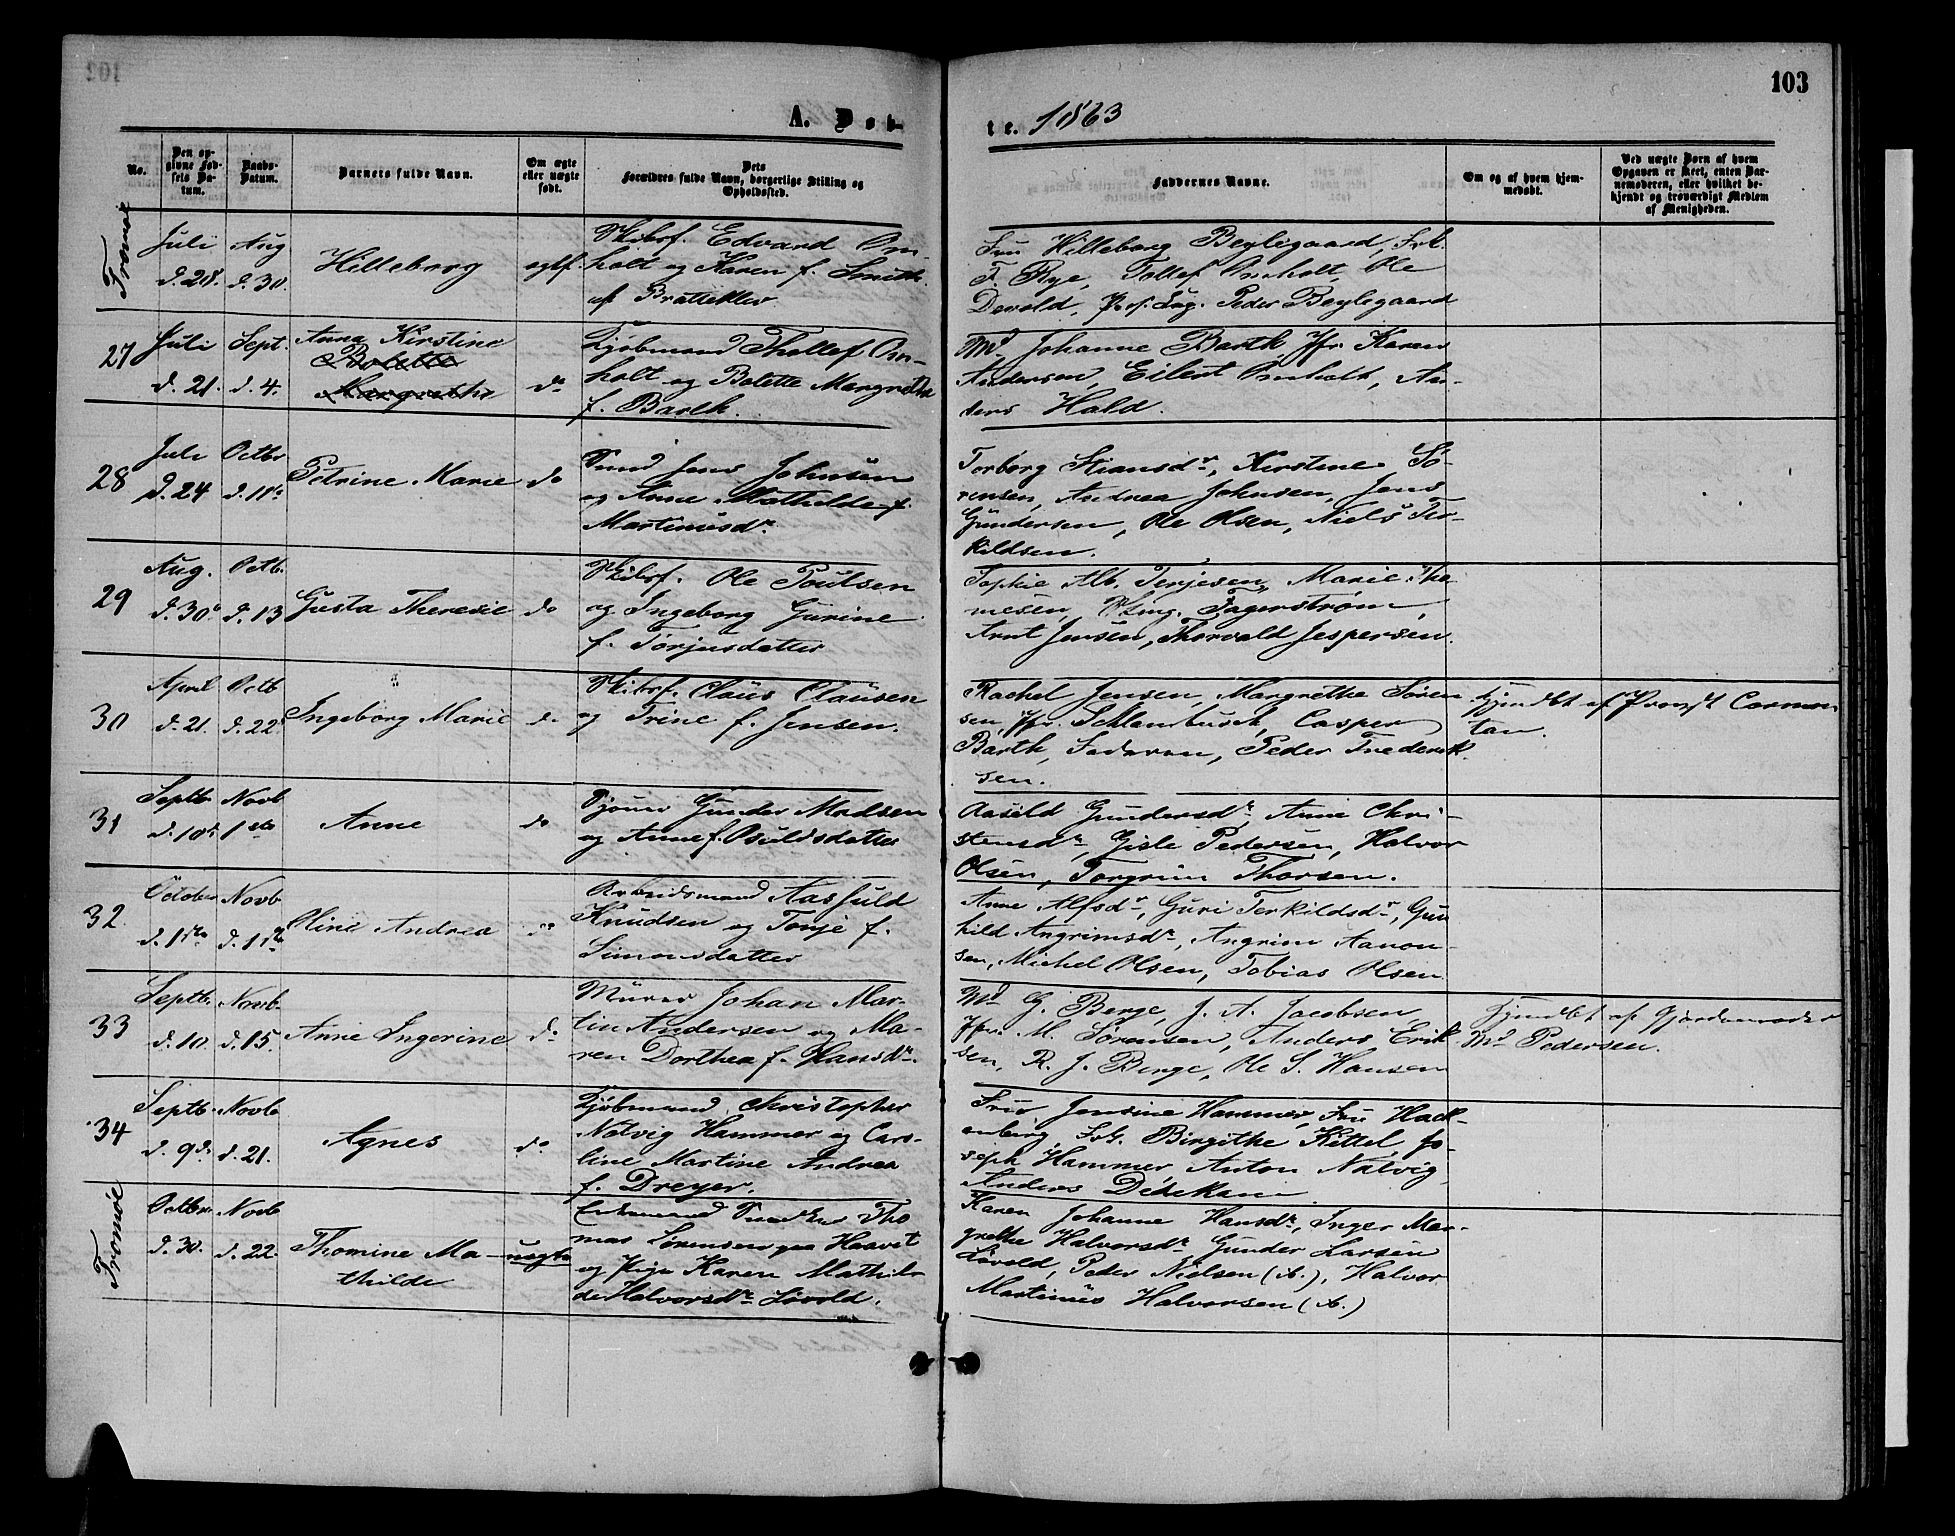 103
A. Døb-
te. 1863
No.
Den op-
givne Fød-
sels Da-
tum.
Daabs-
Datum.
Barnets fulde Navn.
Om ægte
eller uægte
født.
Dets
Forældres fulde Navn, borgerlige Stilling og
Opholdssted.
Faddernes Navne.
Om og af hvem hjem-
medøbt.
Ved uægte Børn af hvem
Opgaven er skeet, enten Bar-
nemoderen, eller hvilket be-
kjendt og troværdigt Medlem
af Menigheden.
Tromøe
Juli
d. 28.
Aug
d. 30.
Hilleborg
ægtf.
Skibsf. Edvard Om-
holt og Karen f. Smith
af Bratteklev
Fru Hilleborg Beylegaard, Frk.
F. Rye, Tollef Omholt, Ole
Devold, Peder Beylegaard
27
Juli
d. 21.
Sept.
d. 4.
Anna Kirstine
Bolette
Margrethe
do
Kjøbmand Thollef Om-
holt og Bolette Margrethe
f. Barth.
Md Johanne Barth, Jfr. Karen
Andersen, Eilert Omholt, An-
ders Hald.
28
Juli
d. 24
Octbr
d. 11te
Petrine Marie
do
Tmd Jens Johnsen
og Anne Mathilde f.
Martinusdr.
Torborg Stiansdr, Kirstine Sø-
rensen, Andrea Johnsen, Jens
Gundersen, Ole Olsen, Niels Ter-
kildsen.
29
Aug.
d. 30.
Octb.
d. 13
Gusta Theresie
do
Skibsf. Ole Poulsen
og Ingeborg Gurine
f. Torjusdatter
Sophie Alb. Terjesen, Marie Tho-
mesen, Fagerstrøm,
Arnt Jensen, Thorvald Jespersen.
30
April
d. 21.
Octb
d. 22.
Ingeborg Marie
do
Skibsf. Claus Clausen
og Trine f. Jensen.
Rachel Jensen, Margrethe Søren
sen, Jfr. Schlambusch, Casper
Barth, Faderen, Peder Frederik-
sen.
Kjendet af Provst Carmon
tan.
31
Septb.
d. 10de
Novb
1ste
Anne
do
Tjener Gunder Madsen
og Anne f. Osuldsdatter
Aasild Gundersdr, Anne Chri-
stensdr, Gisle Pedersen, Halvor
Olsen, Torgrim Thorsen.
32
October
d. 1ste
Novb
d. 1ste
Oline Andrea
do
Arbeidsmand Aasuld
Knudsen og Tonje f.
Simonsdatter
Anne Alfsdr, Guri Terkildsdr, Gun
hild Angrimsdr, Angrim Aanon-
sen, Michel Olsen, Tobias Olsen
33
Septb.
d. 10.
Novb.
d. 15.
Anne Ingerine
do
Murer Johan Mar-
tin Andersen og Ma-
ren Dorthea f. Hansdr.
Md G. Berge, J. A. Jacobsen
Jfr. M. Sørensen, Anders Erik
sen, R. J. Berge, Ole S. Hansen
Kjendet af Gjordemoder
Md Pedersen.
34
Septb.
d. 9de
Novb
d. 21.
Agnes
do
Kjøbmand Christopher
Natvig Hammer og Caro-
line Martine Andrea
f. Dreyer.
Frue Jensine Hammer, Fru Hack-
enberg, Frk. Birgithe Kittel, Jo-
seph Hammer, Anton Natvig,
Anders Dedekam
Tromøe
Octbr.
d. 30.
Novb
d. 22.
Thomine Ma-
thilde
uægte
Enkemand Tmd Tho
mas Sørensen paa Haavet
og Pige Karen Mathil-
de Halvorsdr Løvold.
Karen Johanne Hansdr, Inger Mar-
grethe Halvorsdr Gunder Larsen
Løvold, Peder Nielsen (A.), Halvor
Martinus Halvorsen (A.)